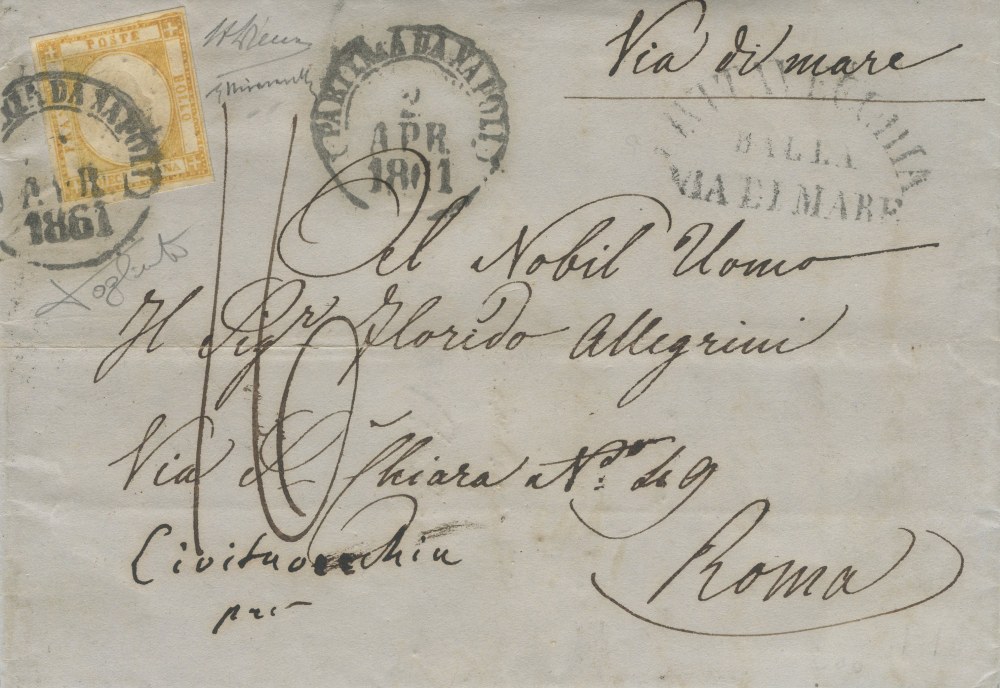 POSTE
BOLLO
DA NAPOLI
APR
1861
PARTENZA DA NAPOLI
2
APR
1861
Via di mare
CIVITAVECCHIA
DALLA
VIA DI MARE
16
Al Nobil Uomo
Il Sigr Florido Allegrini
Via S. Chiara No. 49
Civitavecchia
Roma